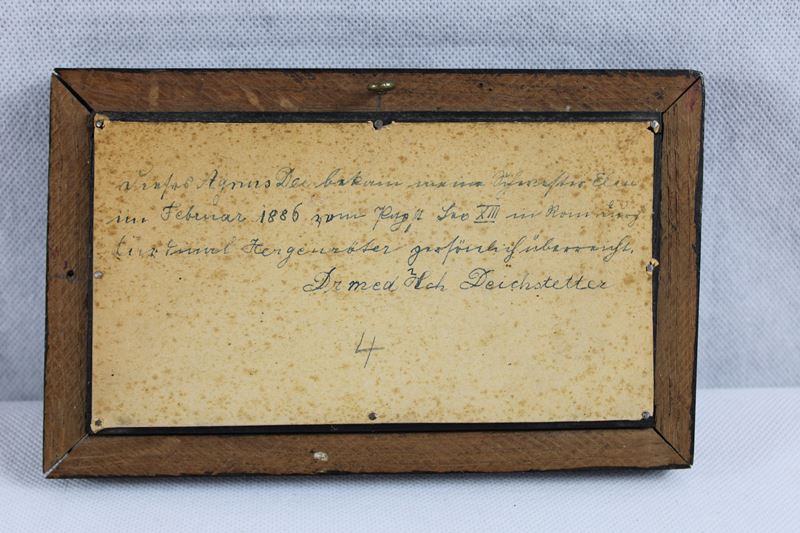 dieses Agnus Dei bekam meine Schwester
im Februar 1886 vom Papst Leo XIII in Rom
Hergenröter persönlich überreicht.
Dr med Hch Deichstetter
4